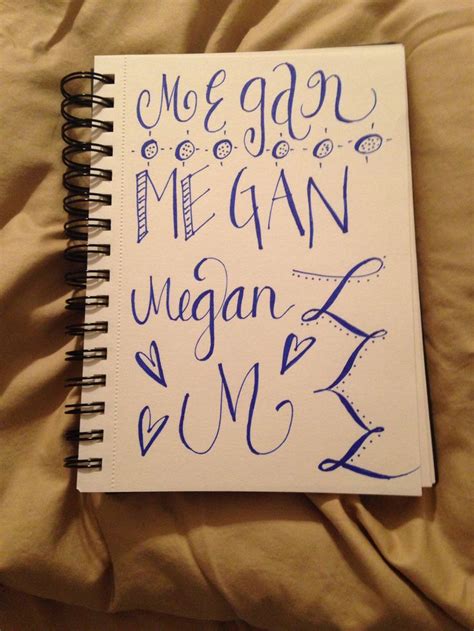 Megan
MEGAN
Megan
M